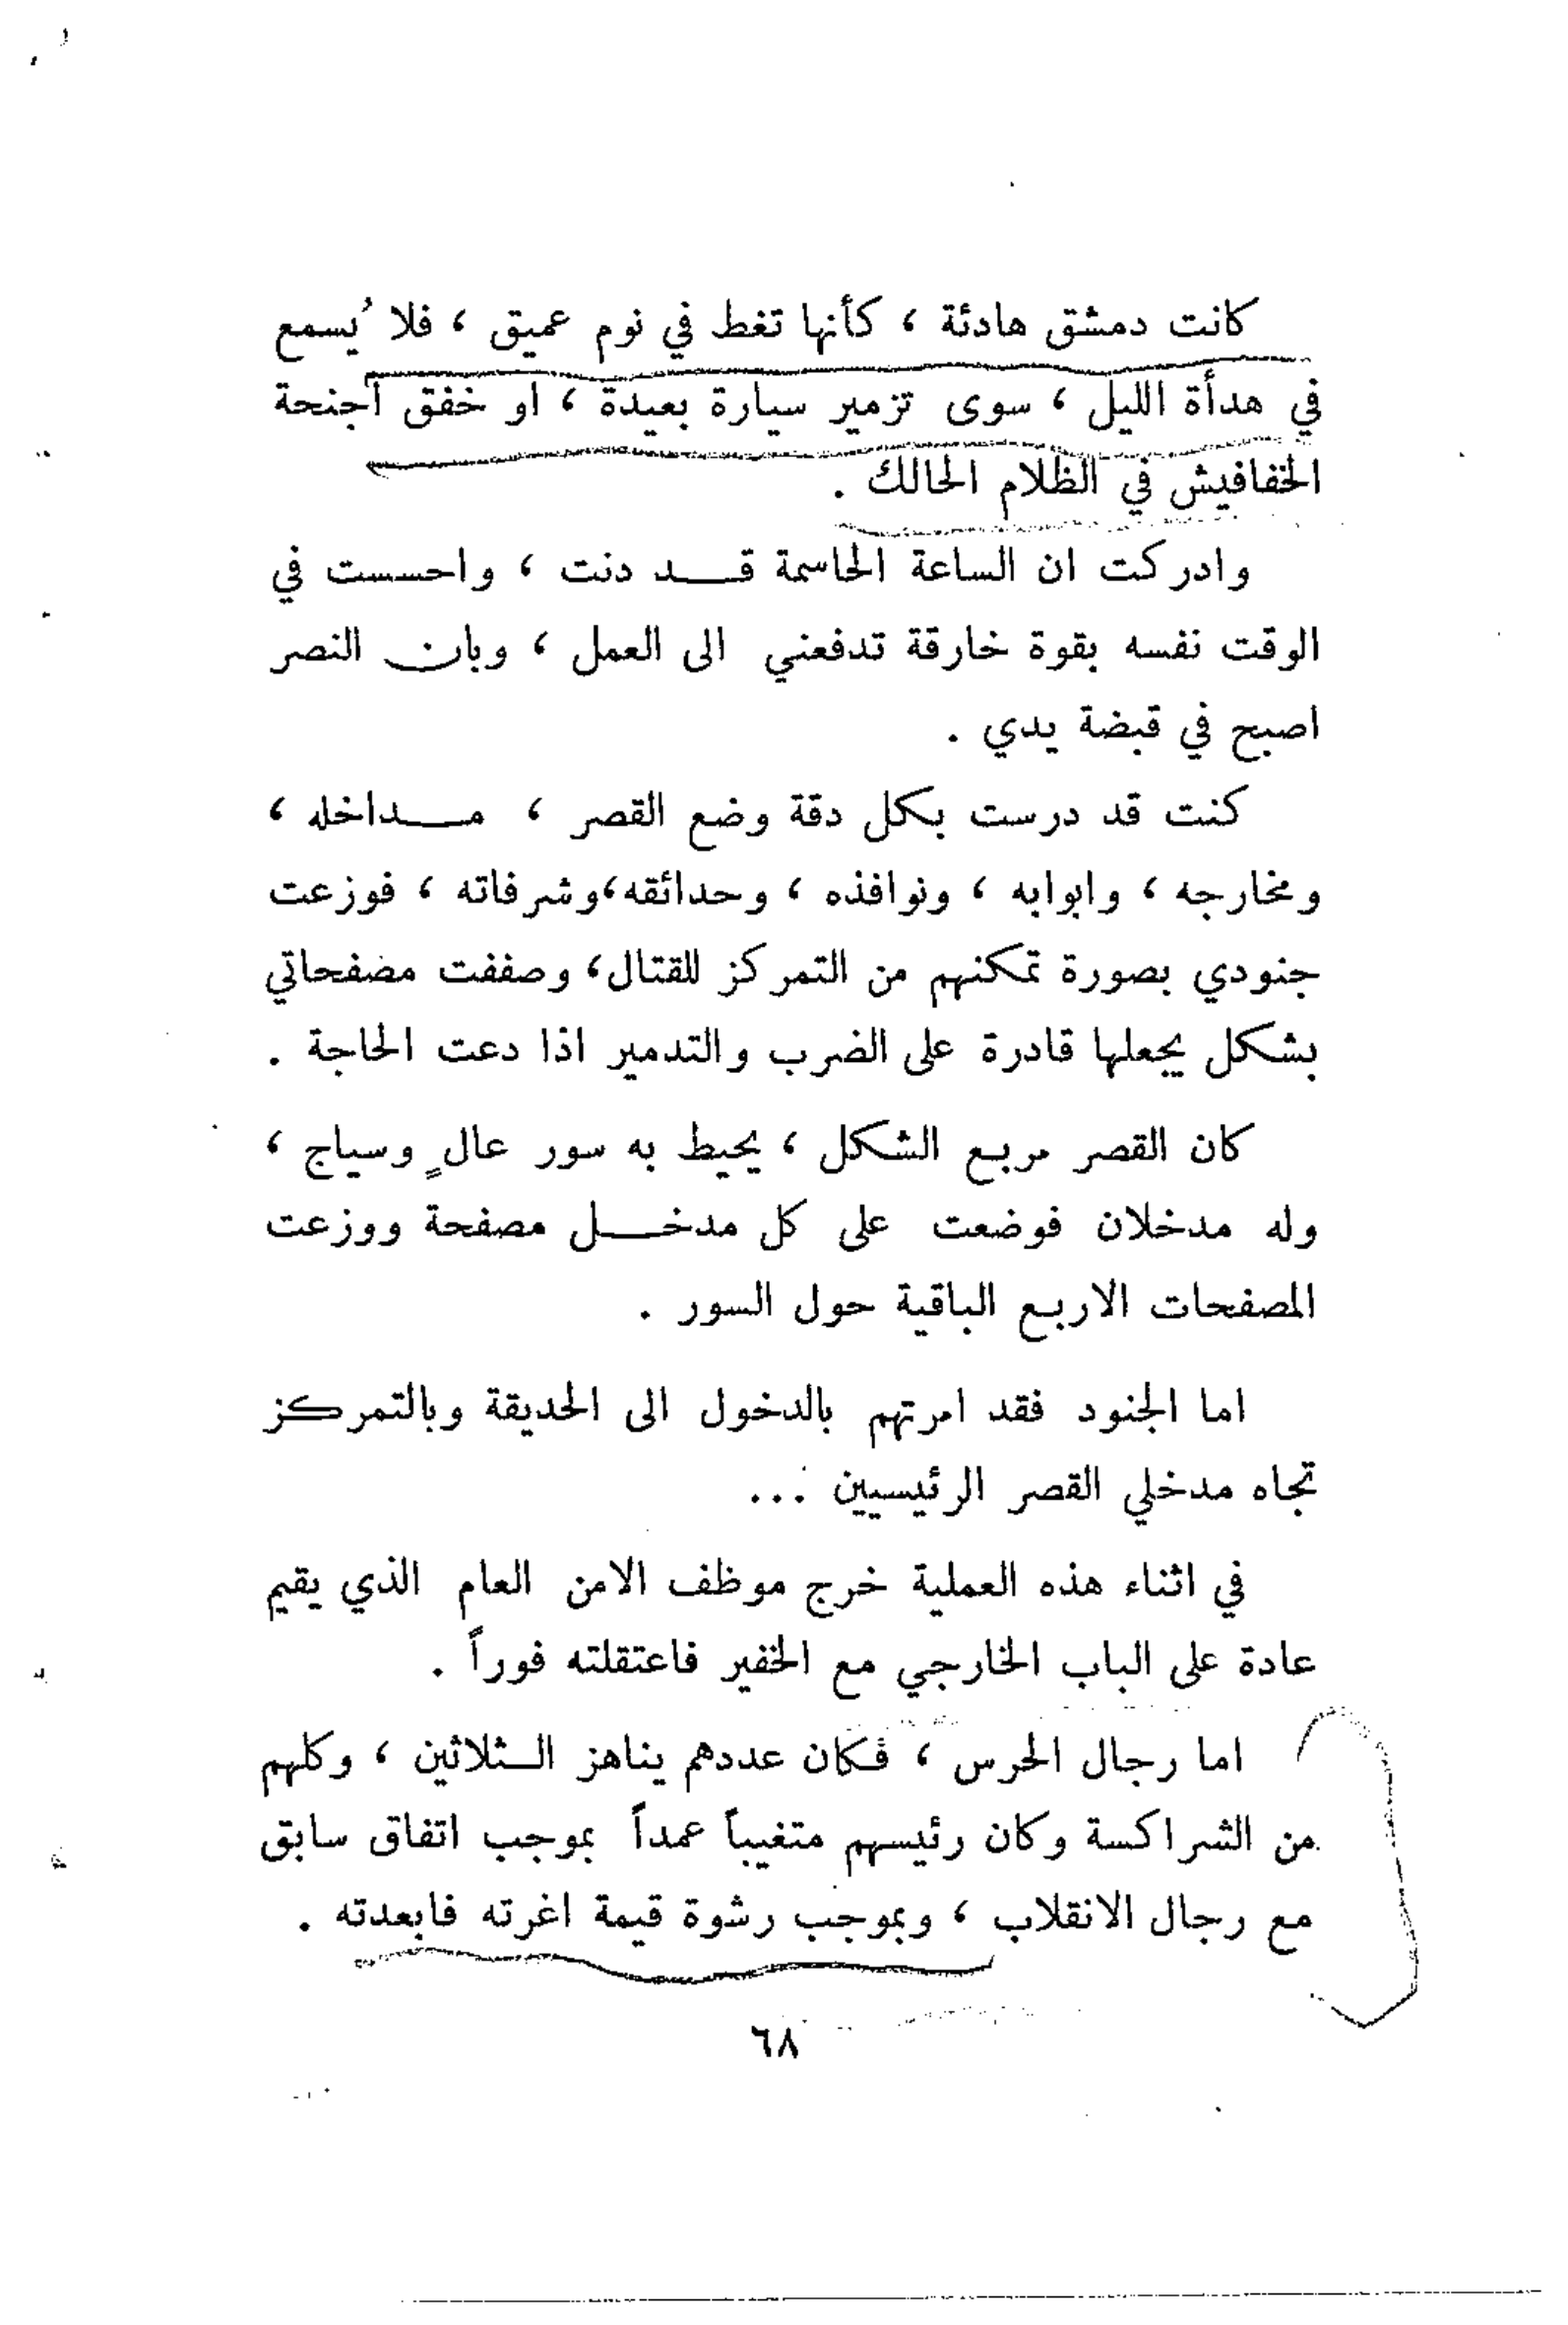 كانت دمشق هادئة ، كأنها تغط في نوم عميق ، فلا يُسمع
في هدأة الليل ، سوى تزمير سيارة بعيدة ، او خفق أجنحة
الخفافيش في الظلام الحالك .
وادركت ان الساعة الحاسمة قـــد دنت ، واحسست في
الوقت نفسه بقوة خارقة تدفعني الى العمل ، وبان النصر
اصبح في قبضة يدي .
كنت قد درست بكل دقة وضع القصر ، مـــداخله ،
ومخارجه ، وابوابه ، ونوافذه ، وحدائقه،وشرفاته ، فوزعت
جنودي بصورة تمكنهم من التمركز للقتال، وصففت مصفحاتي
بشكل يجعلها قادرة على الضرب والتدمير اذا دعت الحاجة .
كان القصر مربع الشكل ، يحيط به سور عالٍ وسياج ،
وله مدخلان فوضعت على كل مدخـــل مصفحة ووزعت
المصفحات الاربع الباقية حول السور .
اما الجنود فقد امرتهم بالدخول الى الحديقة وبالتمركز
تجاه مدخلي القصر الرئيسيين ...
في اثناء هذه العملية خرج موظف الامن العام الذي يقيم
عادة على الباب الخارجي مع الخفير فاعتقلته فوراً .
اما رجال الحرس ، فكان عددهم يناهز الـثلاثين ، وكلهم
من الشراكسة وكان رئيسهم متغيباً عمداً بموجب اتفاق سابق
مع رجال الانقلاب ، وبموجب رشوة قيمة اغرته فابعدته .
٦٨